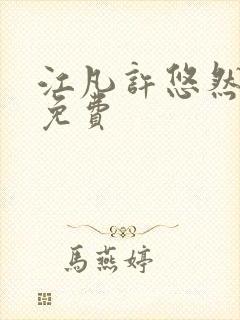 江凡許悠然
免費
馬燕婷